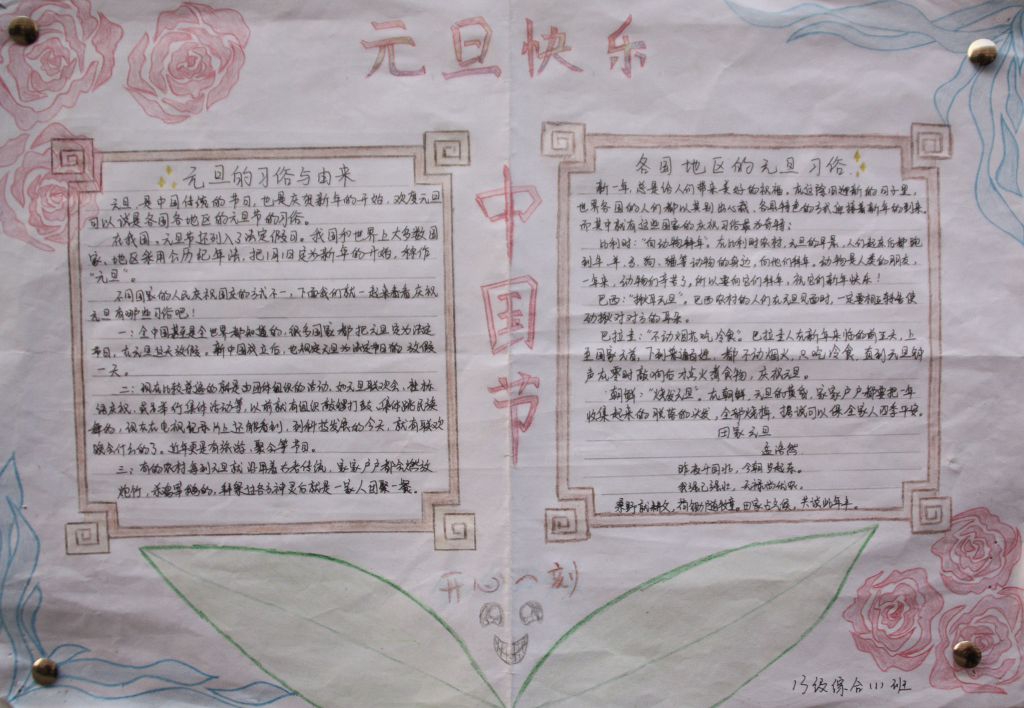 元旦快乐
元旦的习俗与由来
元旦是中国传统的节日,也是庆贺新年的开始,欢度元旦
可以说是各国各地区的元旦节的习俗。
在我国,元旦节还列入了法定假日。我国和世界上大多数国
家、地区采用公历纪年法,把1月1日定为新年的开始,称作
“元旦”。
不同国家的人民庆祝国立的方式不一,下面我们就一起来看看庆祝
元旦有哪些习俗吧!
一:全中国甚至是全世界都知道的,很多国家都把元旦定为法定
节日,在元旦当天放假。新中国成立后,也规定元旦为法定节日的放假
一天。
二:现在比较普遍的就是由团体组织的活动,如元旦联欢会、挂标
语庆祝,或举行集体活动等,以前就有组织敲锣打鼓、集体跳民族
舞的,现在在电视纪录片上还能看到,到科技发展的今天,就有联欢
晚会什么的了。近年更是有旅游、聚会等节目。
三:有的农村每到元旦就沿用着古老传统,家家户户都会燃放
炮竹,杀鸡宰鹅的,拜祭过各方神灵后就是一家人团聚一餐。
中国节
各国地区的元旦习俗
新一年,总是给人们带来美好的祝福,在这除旧迎新的日子里,
世界各国的人们都以其别出心裁、各具特色的方式迎接着新年的到来。
而其中就有这些国家的庆祝习俗最为奇特:
比利时:“向动物拜年”。在比利时农村,元旦的早晨,人们起床后都跑
到牛、羊、马、狗、猫等动物的身边,向他们拜年。动物是人类的朋友,
一年来,动物们辛苦了,所以要向它们拜年,祝它们新年快乐!
巴西:“揪耳元旦”。巴西农村的人们在元旦见面时,一定要相互转着使
劲揪对方的耳朵。
巴拉圭:“不动烟火吃冷食”。巴拉圭人在新年来临的前五天,上
至国家元首,下到普通百姓,都不动烟火,只吃冷食,直到元旦钟
声在零时敲响后才点火煮食物,庆祝元旦。
朝鲜:“烧发元旦”。在朝鲜,元旦的黄昏,家家户户都要把一年
收集起来的脱落的头发,全部烧掉,据说可以保全家人四季平安。
田家元旦
孟浩然
昨夜斗回北,今朝岁起东。
我年已强壮,无禄尚忧农。
桑野就耕父,荷锄随牧童。田家占气候,共说此年丰。
开心一刻
13级综合(1)班